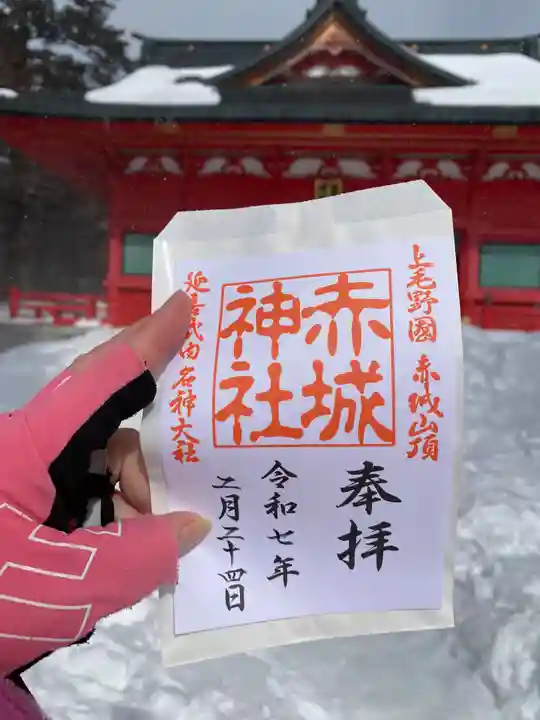 上毛野國 赤城山頂
赤城
神社
延喜式内名神大社
奉拝
令和七年
二月二十四日